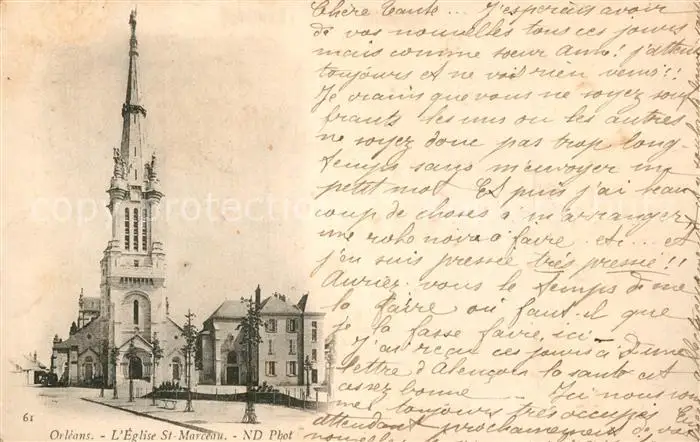 Chère Tante... J'espérais avoir
de vos nouvelles tous ces jours
mais comme sœur Anne! j'attends
toujours et ne vois rien venir!!
Je crains que vous ne soyez souf
frants les uns ou les autres
ne soyez donc pas trop long-
temps sans m'envoyer un
petit mot Et puis j'ai beau
coup de choses à m'arranger
une robe noire à faire et... et
j'en suis pressée très pressée!!
Auriez vous le temps de me
la faire ou faut-il que je
la fasse faire ici
J'ai reçu ces jours-ci une
lettre d'Alençon la santé est
assez bonne Ici nous sommes
toujours très occupés
attendant prochainement de vos
nouvelles
61
Orléans. - L'Église St-Marceau. - ND Phot
copyright protected